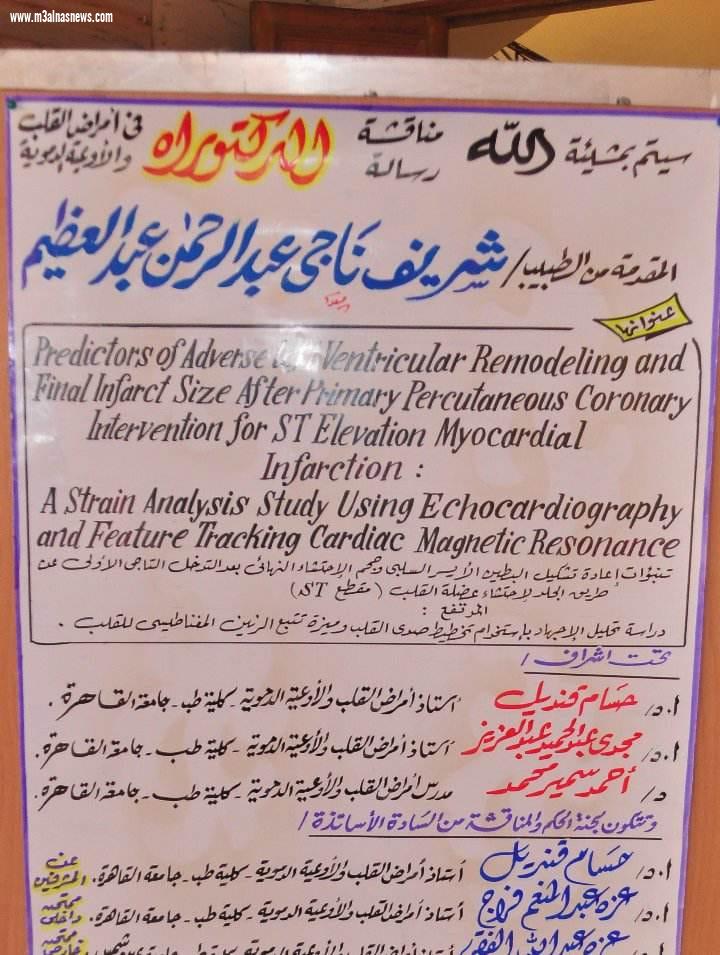 www.m3alnasnews.com
سيتم بمشيئة الله مناقشة رسالة الدكتوراه في أمراض القلب والأوعية الدموية
المقدمة من الطبيب/ شريف ناجى عبد الرحمن عبد العظيم
عنوانها
Predictors of Adverse Ventricular Remodeling and
Final Infarct Size After Primary Percutaneous Coronary
Intervention for ST Elevation Myocardial
Infarction :
A Strain Analysis Study Using Echocardiography
and Feature Tracking Cardiac Magnetic Resonance
تنبؤات إعادة تشكيل البطين الأيسر السلبى وحجم الإحتشاء النهائى بعد التدخل التاجى الأولى عن
طريق الجلد لإحتشاء عضلة القلب ( مقطع ST
المرتفع :
دراسة تحليل الإجهاد بإستخدام تخطيط صدى القلب وميزة تتبع الرنين المغناطيسى للقلب .
تحت اشراف /
أ.د/ حسام قنديل أستاذ أمراض القلب والأوعية الدموية - كلية طب - جامعة القاهرة .
أ.د/ مجدى عبد الحميد عبد العزيز أستاذ أمراض القلب والأوعية الدموية - كلية طب - جامعة القاهرة .
د/ أحمد سمير محمد مدرس أمراض القلب والأوعية الدموية - كلية طب - جامعة القاهرة .
وتتكون لجنة الحكم والمناقشة من السادة الأساتذة /
أ.د/ حسام قنديل أستاذ أمراض القلب والأوعية الدموية - كلية طب - جامعة القاهرة . عن المشرفين
أ.د/ عزه عبد المنعم فراج أستاذ أمراض القلب والأوعية الدموية - كلية طب - جامعة القاهرة . ممتحن داخلى
أ.د/ عزه عبد الله الفقى ممتحن